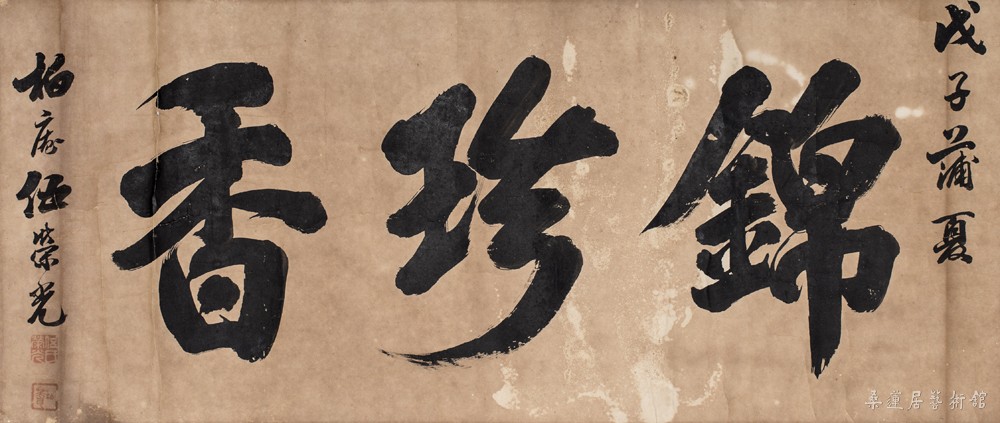 戊子蒲夏
錦珍香
柏庵伍榮光
桑蓮居藝術館